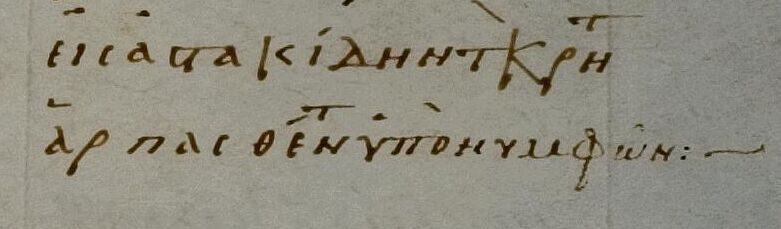 εἰς ἀστακίδην τ̀ κρῆτ
ἁρπασθέντ ὑπὸ νυμφῶν :—